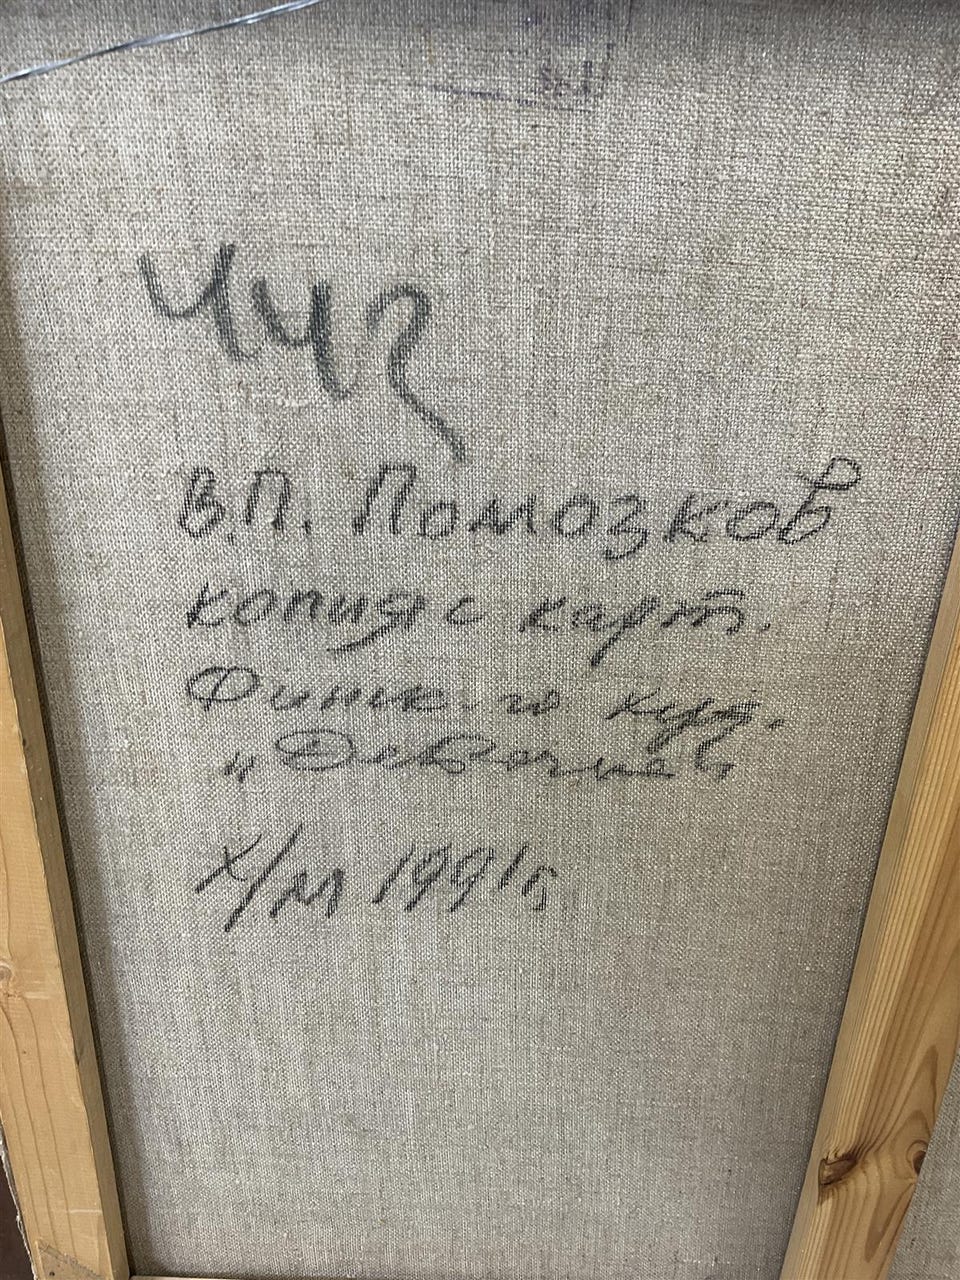 В.П. Помозков
копия с карт.
Финск. го худ.
"Девочка"
х/м 1991г.